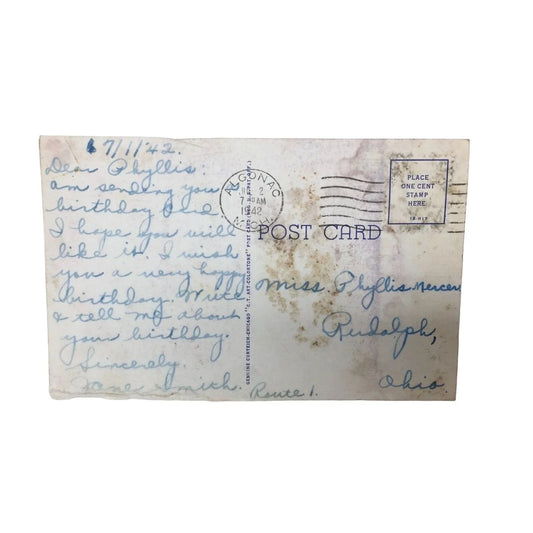 7/1/42.
Dear Phyllis:
am sending you a
birthday
I hope you will
like it. I wish
you a very happy
birthday. Write
& tell me about
your birthday.
Sincerely.
Jane Smith.
GENUINE CURTEICH-CHICAGO "C.T. ART-COLORTONE" POST CARD
ALGONAC
JUL 2
7 AM
1942
MICH.
POST CARD
PLACE
ONE CENT
STAMP
HERE
Miss Phyllis Mercer
Rudolph,
Ohio
Route 1.